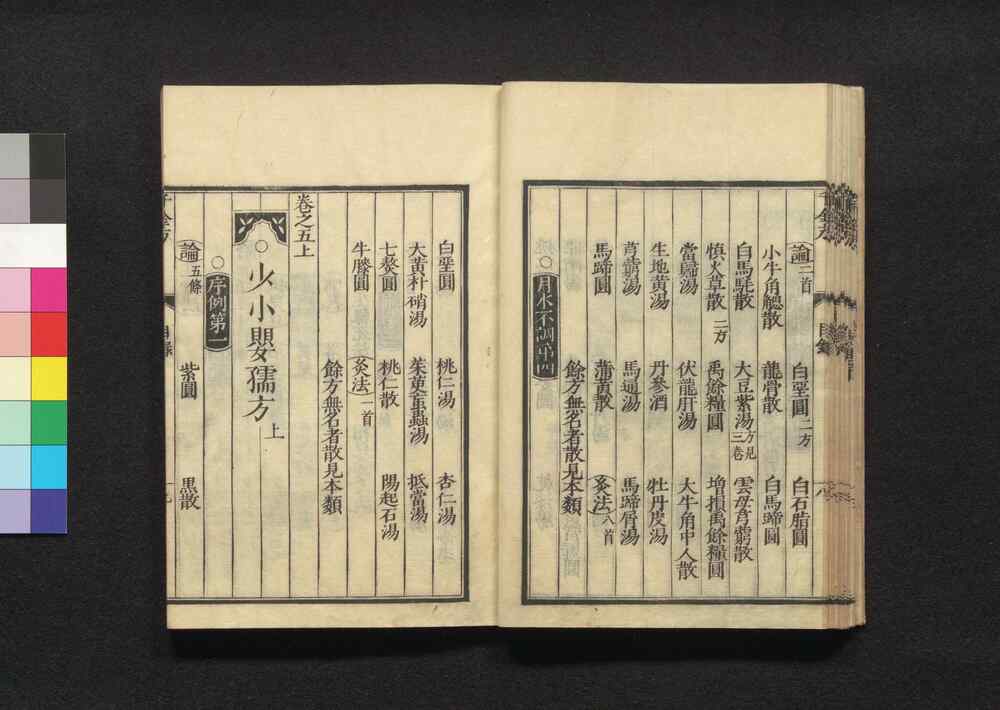 論二首 白堊圓二方 白石脂圓
小牛角䚡散 龍骨散 白馬蹄圓
白馬駞散 大豆紫湯方見三卷 雲母芎藭散
慎火草散二方 禹餘糧圓 增損禹餘糧圓
當歸湯 伏龍肝湯 大牛角中人散
生地黃湯 丹參酒 牡丹皮湯
芎藭湯 馬通湯 馬蹄屑湯
馬蹄圓 蒲黃散 灸法八首
餘方無名者散見本類
○月水不調第四
白堊圓 桃仁湯 杏仁湯
大黃朴硝湯 茱萸䗪蟲湯 抵當湯
七熬圓 桃仁散 陽起石湯
牛膝圓 灸法一首
餘方無名者散見本類
卷之五上
○少小嬰孺方上
○序例第一
論五條 紫圓 黑散
千金方 目錄